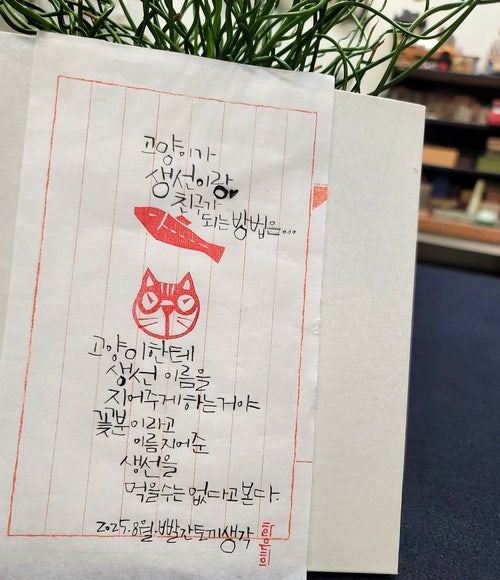 고양이가
생선이랑♥
친구가
되는 방법은...
고양이한테
생선 이름을
지어주게 하는거야
꽃분이라고
이름 지어준
생선을
먹을수는 없다고 본다.
2025.8월.빨간토끼생각